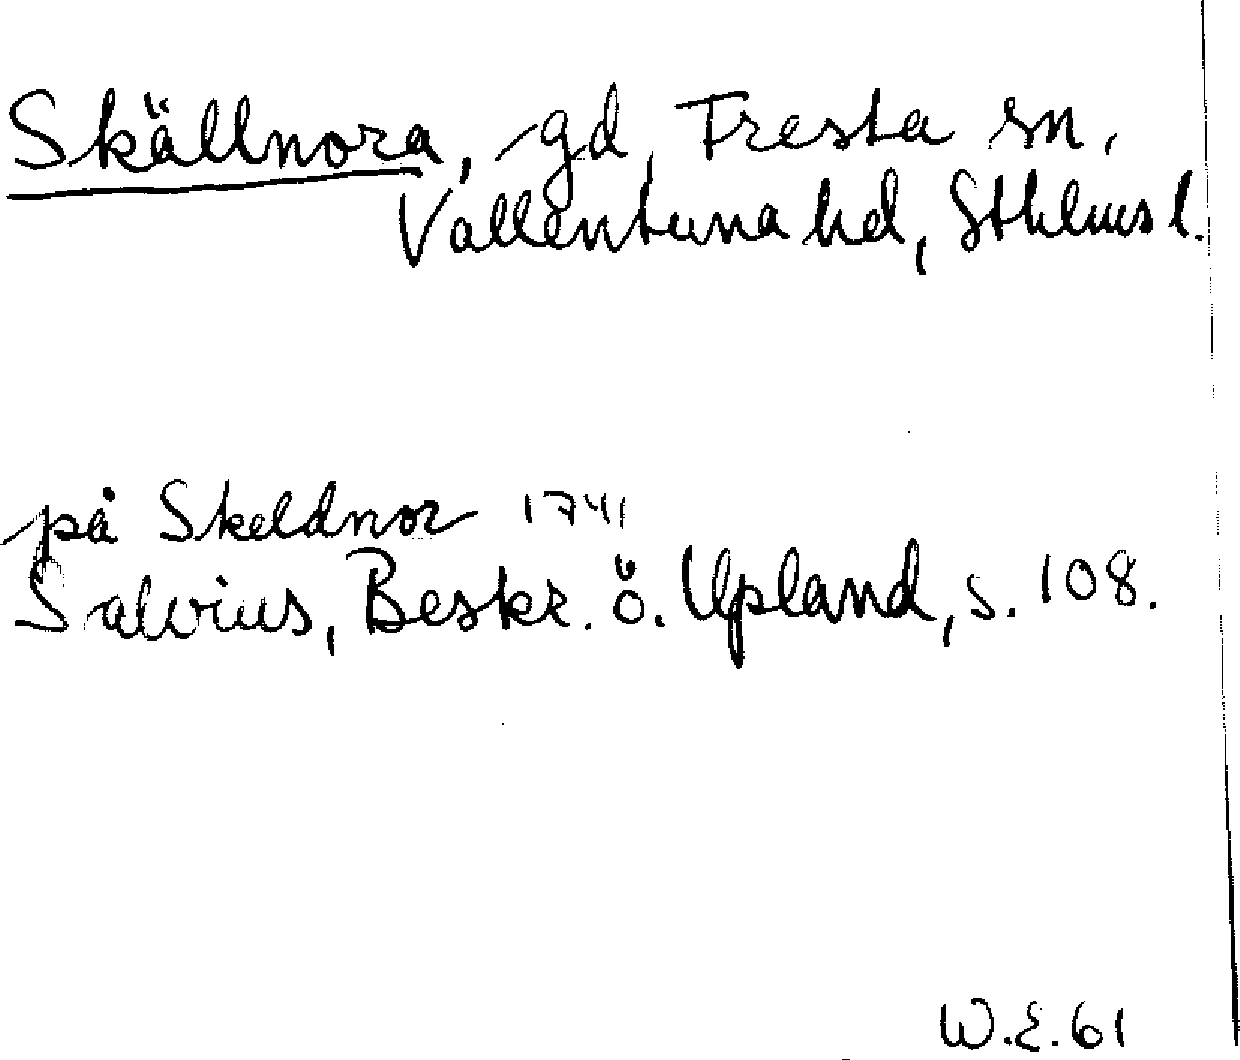 Skällnora, gd, Fresta sn,
Vallentuna hd, Sthlms l.
på Skeldnor 1741
Salvius, Beskr. ö. Upland, s. 108.
W.E. 61